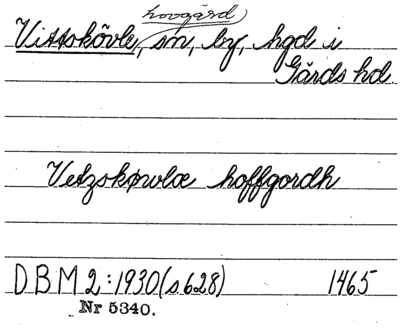 hovgård
Vittskövle, sn, by, hgd i
Gärds hd.
Vetzskøvlæ hoffgordh
DBM 2:1930 (s 628) 1465
Nr 5340.